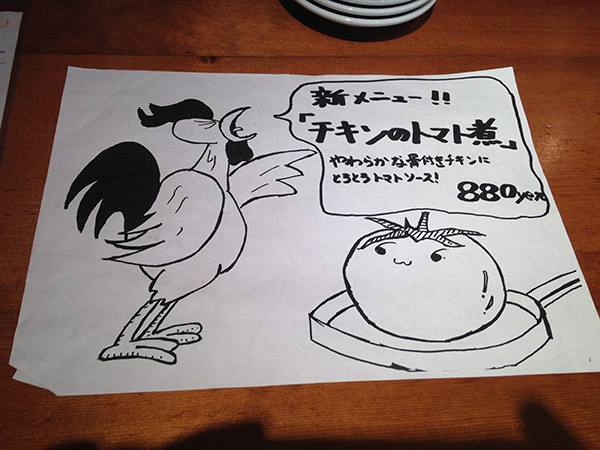 新メニュー!!
「チキンのトマト煮」
やわらかな骨付きチキンに
とろとろトマトソース!
880yen